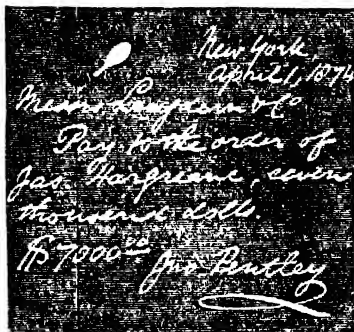 New York
April 1, 1874
Messrs & Co
Pay to the order of
Jas. Hargreave, seven
thousand dolls.
$7000.00
Jno Bentley